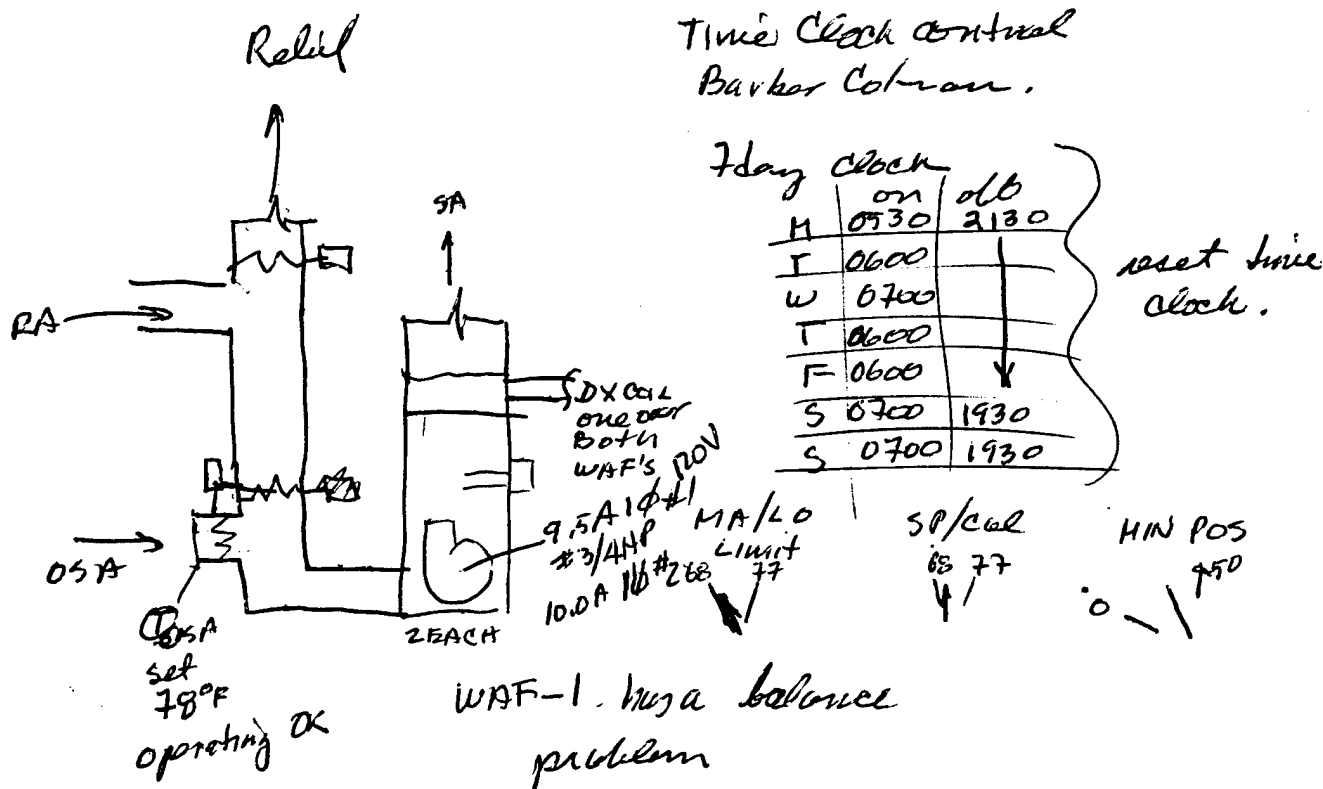 Relief
Time Clock control
Barber Colman.
7 day clock
on off
M 0530 2130
T 0600
W 0700
T 0600
F 0600
S 0700 1930
S 0700 1930
reset time
clock.
SA
RA
DX COIL
one over
Both
WAF's
OSA
9.5A 1φ #1 120V
#3/4HP
10.0A 1φ #2
2 EACH
OSA
set
78°F
operating OK
MA/LO
Limit
68 77
SP/Cal
68 77
MIN POS
0 50
WAF-1. has a balance
problem